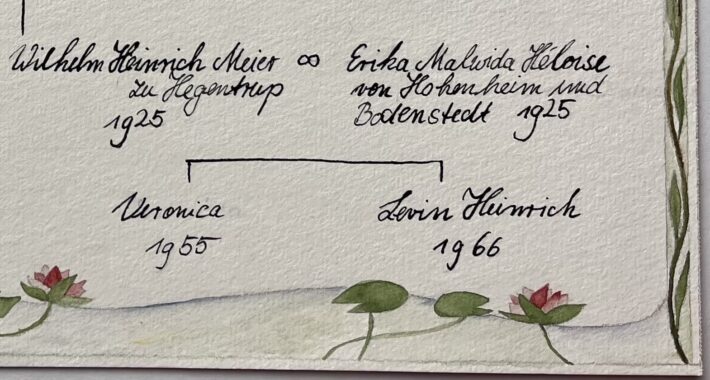 Wilhelm Heinrich Meier ∞ Erika Malwida Héloise
zu Hegentrup von Hohenheim und
1925 Bodenstedt 1925
Veronica Levin Heinrich
1955 1966